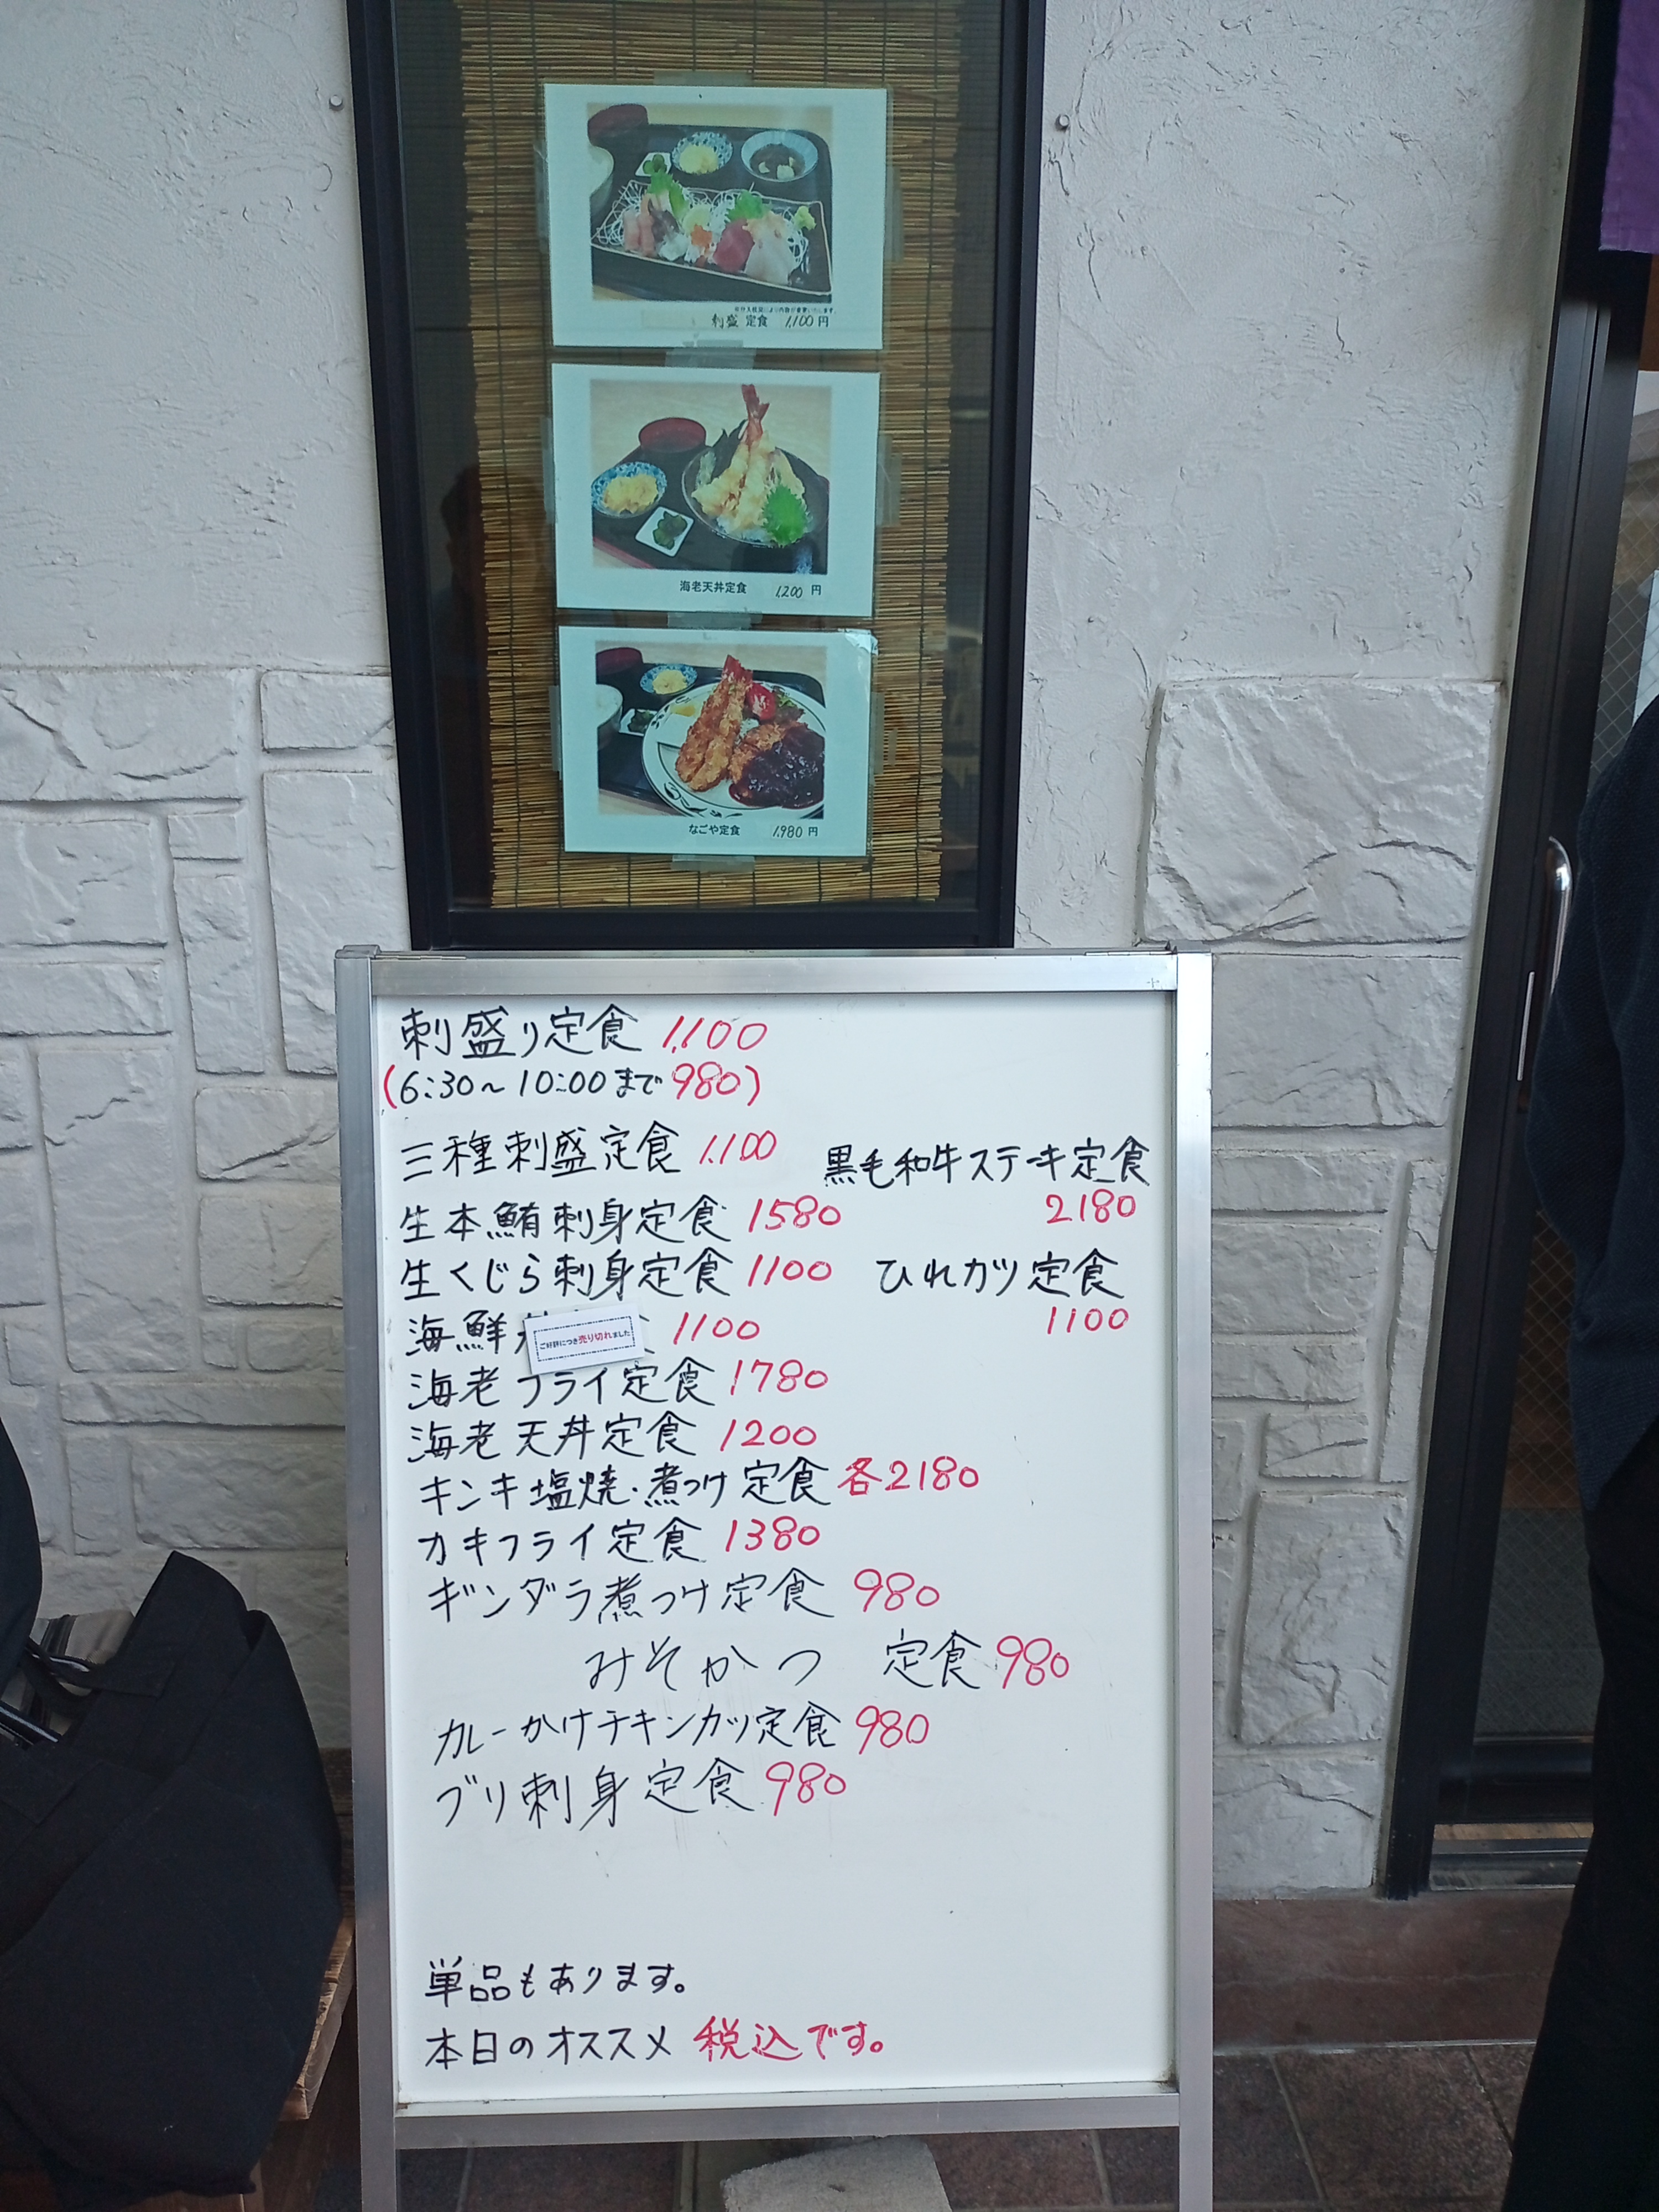 ※仕入状況により内容が変更いたします
刺盛 定食 1,100 円
海老天丼定食 1,200 円
なごや定食 1,980 円
刺盛り定食 1,100
(6:30～10:00まで980)
三種刺盛定食 1,100
黒毛和牛ステーキ定食
2180
生本鮪刺身定食 1580
生くじら刺身定食 1100
ひれカツ定食
1100
海鮮 1100
ご好評につき売り切れました
海老フライ定食 1780
海老天丼定食 1200
キンキ塩焼・煮つけ定食 各2180
カキフライ定食 1380
ギンダラ煮つけ定食 980
みそかつ 定食 980
カレーかけチキンカツ定食 980
ブリ刺身定食 980
単品もあります。
本日のオススメ 税込です。